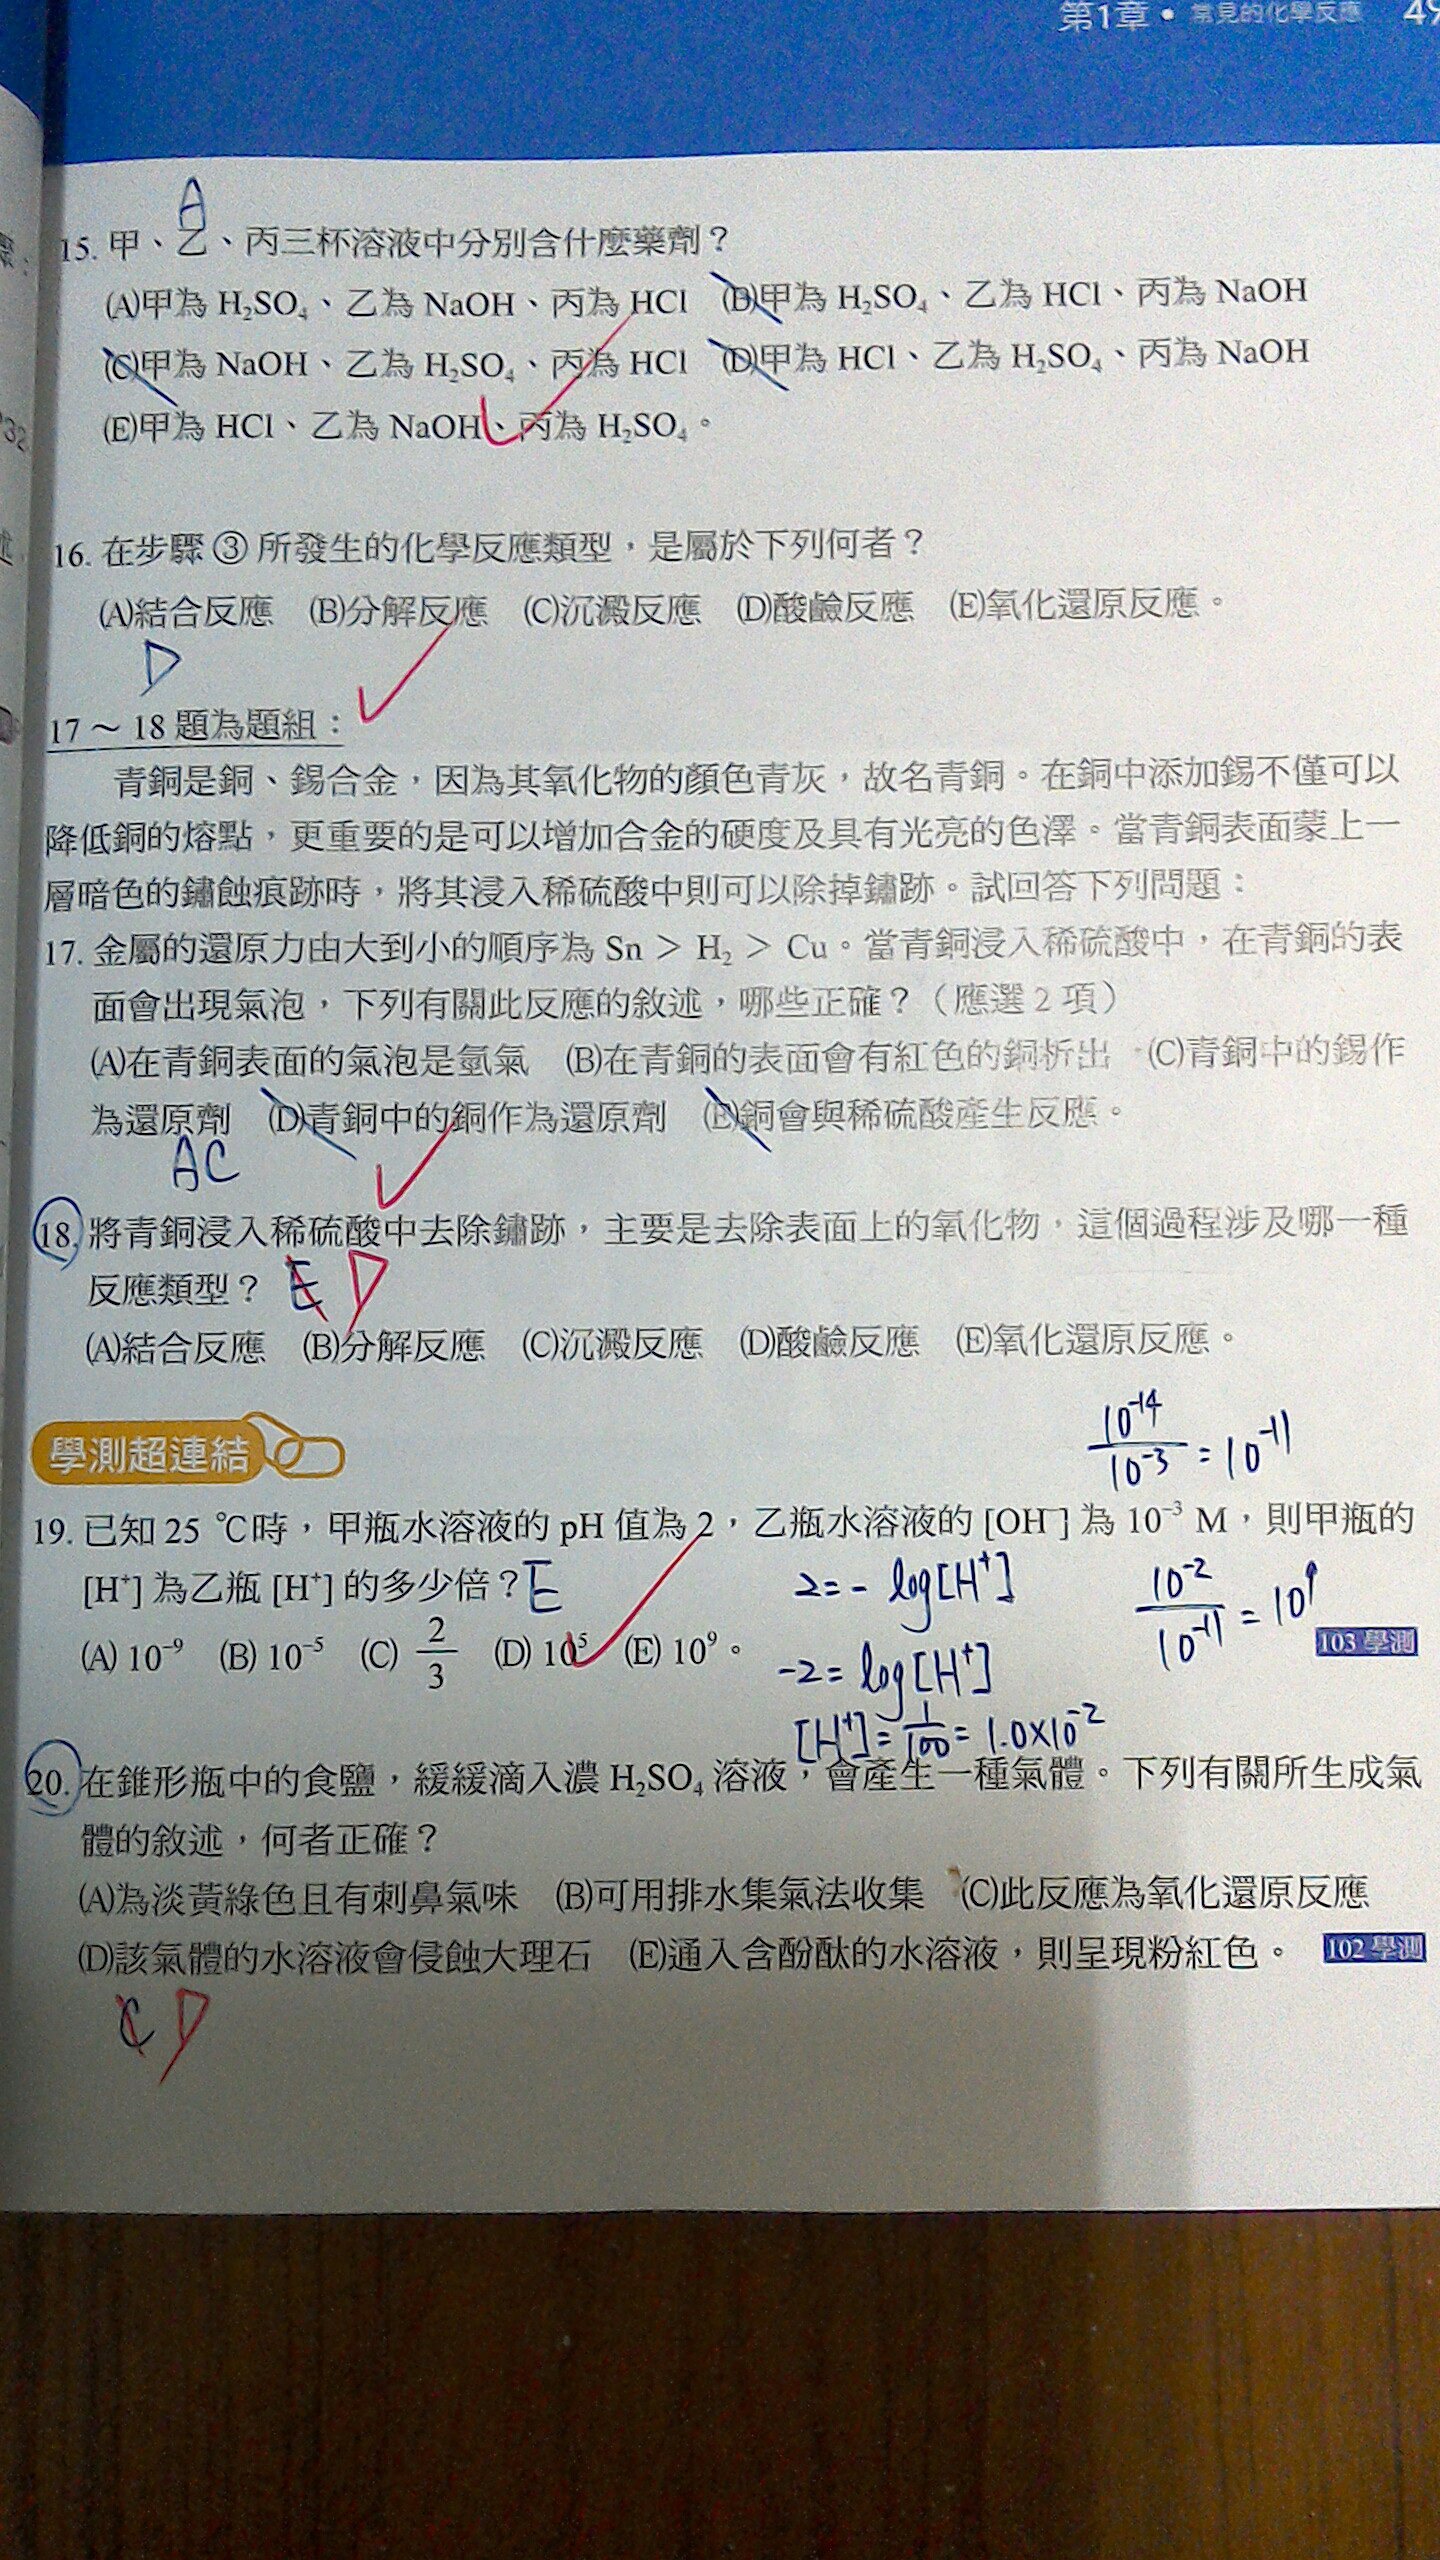 第1章 • 常見的化學反應 49
A
15. 甲、乙、丙三杯溶液中分別含什麼藥劑？
(A)甲為 H₂SO₄、乙為 NaOH、丙為 HCl (B)甲為 H₂SO₄、乙為 HCl、丙為 NaOH
(C)甲為 NaOH、乙為 H₂SO₄、丙為 HCl (D)甲為 HCl、乙為 H₂SO₄、丙為 NaOH
(E)甲為 HCl、乙為 NaOH、丙為 H₂SO₄。
16. 在步驟 ③ 所發生的化學反應類型，是屬於下列何者？
(A)結合反應 (B)分解反應 (C)沉澱反應 (D)酸鹼反應 (E)氧化還原反應。
D
17～18 題為題組：
青銅是銅、錫合金，因為其氧化物的顏色青灰，故名青銅。在銅中添加錫不僅可以
降低銅的熔點，更重要的是可以增加合金的硬度及具有光亮的色澤。當青銅表面蒙上一
層暗色的鏽蝕痕跡時，將其浸入稀硫酸中則可以除掉鏽跡。試回答下列問題：
17. 金屬的還原力由大到小的順序為 Sn > H₂ > Cu。當青銅浸入稀硫酸中，在青銅的表
面會出現氣泡，下列有關此反應的敘述，哪些正確？（應選 2 項）
(A)在青銅表面的氣泡是氫氣 (B)在青銅的表面會有紅色的銅析出 (C)青銅中的錫作
為還原劑 (D)青銅中的銅作為還原劑 (E)銅會與稀硫酸產生反應。
AC
18. 將青銅浸入稀硫酸中去除鏽跡，主要是去除表面上的氧化物，這個過程涉及哪一種
反應類型？ E D
(A)結合反應 (B)分解反應 (C)沉澱反應 (D)酸鹼反應 (E)氧化還原反應。
學測超連結
10⁻¹⁴/10⁻³ = 10⁻¹¹
19. 已知 25 ℃時，甲瓶水溶液的 pH 值為 2，乙瓶水溶液的 [OH⁻] 為 10⁻³ M，則甲瓶的
[H⁺] 為乙瓶 [H⁺] 的多少倍？ E
(A) 10⁻⁹ (B) 10⁻⁵ (C) 2/3 (D) 10⁵ (E) 10⁹。 103 學測
2 = - log[H⁺]
-2 = log[H⁺]
[H⁺] = 1/100 = 1.0×10⁻²
10⁻²/10⁻¹¹ = 10⁹
20. 在錐形瓶中的食鹽，緩緩滴入濃 H₂SO₄ 溶液，會產生一種氣體。下列有關所生成氣
體的敘述，何者正確？
(A)為淡黃綠色且有刺鼻氣味 (B)可用排水集氣法收集 (C)此反應為氧化還原反應
(D)該氣體的水溶液會侵蝕大理石 (E)通入含酚酞的水溶液，則呈現粉紅色。 102 學測
C D